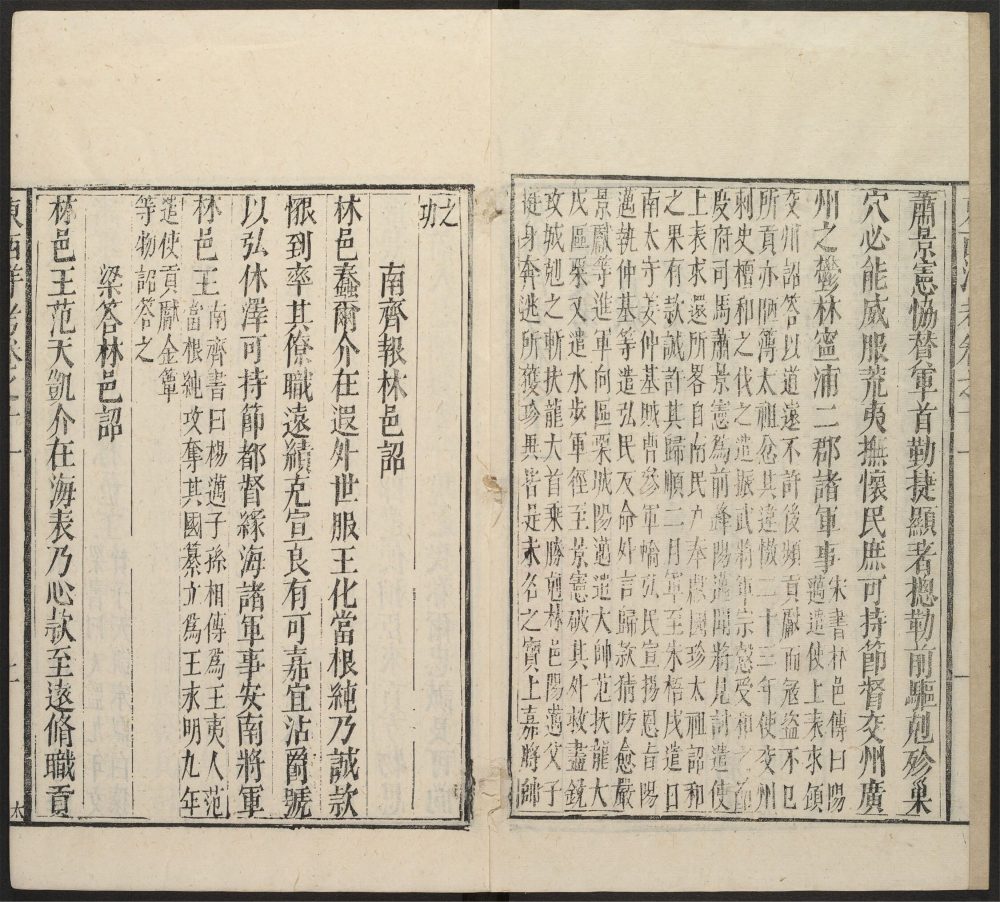 蕭景憲恊督軍首勤捷顯著摠勒前驅剋殄巢
穴必能威服荒夷撫懷民庶可持節督交州廣
州之鬱林寧浦二郡諸軍事
宋書林邑傳曰陽
邁遣使上表求領
交州詔答以道遠不許後頻貢獻而寇盜不已
所貢亦陋薄太祖忿其違慠二十三年使交州
刺史檀和之伐之遣振武將軍宗慤受和之節
度府司馬蕭景憲為前鋒陽邁聞將見討遣使
上表求還所畧日南民戶奉獻國珍太祖詔和
之果有款誠許其歸順二月軍至朱梧戍遣日
南太守姜仲基賊曹參軍蟜弘民宣揚恩旨陽
邁執仲基等遣弘民反命外言歸款猜防愈嚴
景憲等進軍向區粟城陽邁遣大帥范扶龍大
戍區粟又遣水步軍徑至景憲破其外救盡銳
攻城剋之斬扶龍大首乗勝剋林邑陽邁父子
挺身奔逃所獲珍異皆是未名之寶上嘉將帥
之
功
南齊報林邑詔
林邑蠢爾介在遐外世服王化當根純乃誠款
懇到率其僚職遠績克宣良有可嘉宜沾爵號
以弘休澤可持節都督緣海諸軍事安南將軍
林邑王
南齊書曰楊邁子孫相傳爲王夷人范
當根純攻奪其國簒立爲王永明九年
遣使貢獻金簟
等物詔答之
梁答林邑詔
林邑王范天凱介在海表乃心款至遠脩職貢
東西洋考卷之十一